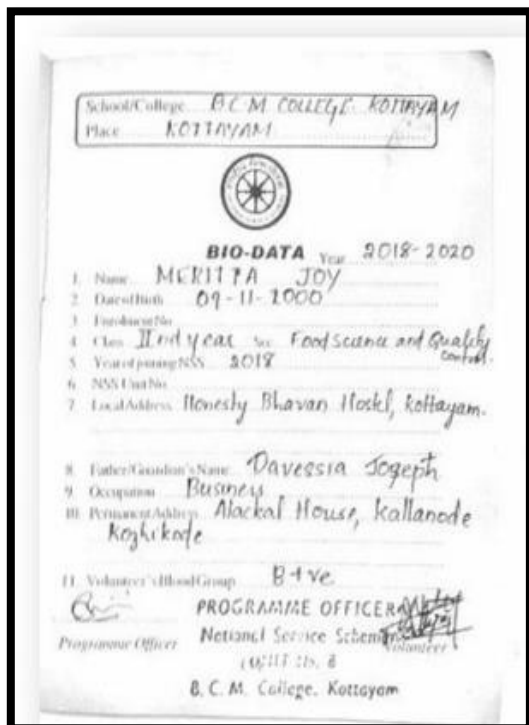 School/College B.C.M COLLEGE. KOTTAYAM
Place KOTTAYAM
BIO-DATA Year 2018-2020
1. Name MERITTA JOY
2. Date of Birth 09-11-2000
3. Enrolment No
4. Class IInd year Sec Food science and Quality control.
5. Year of joining NSS 2018
6. NSS Unit No
7. Local Address Honesty Bhavan Hostel, kottayam.
8. Father/Guardian's Name Davessia Joseph
9. Occupation Business
10. Permanent Address Alackal House, kallanode
Kozhikode
11. Volunteer's Blood Group B+ve
PROGRAMME OFFICER
Programme Officer National Service Scheme Volunteer
B. C. M. College. Kottayam